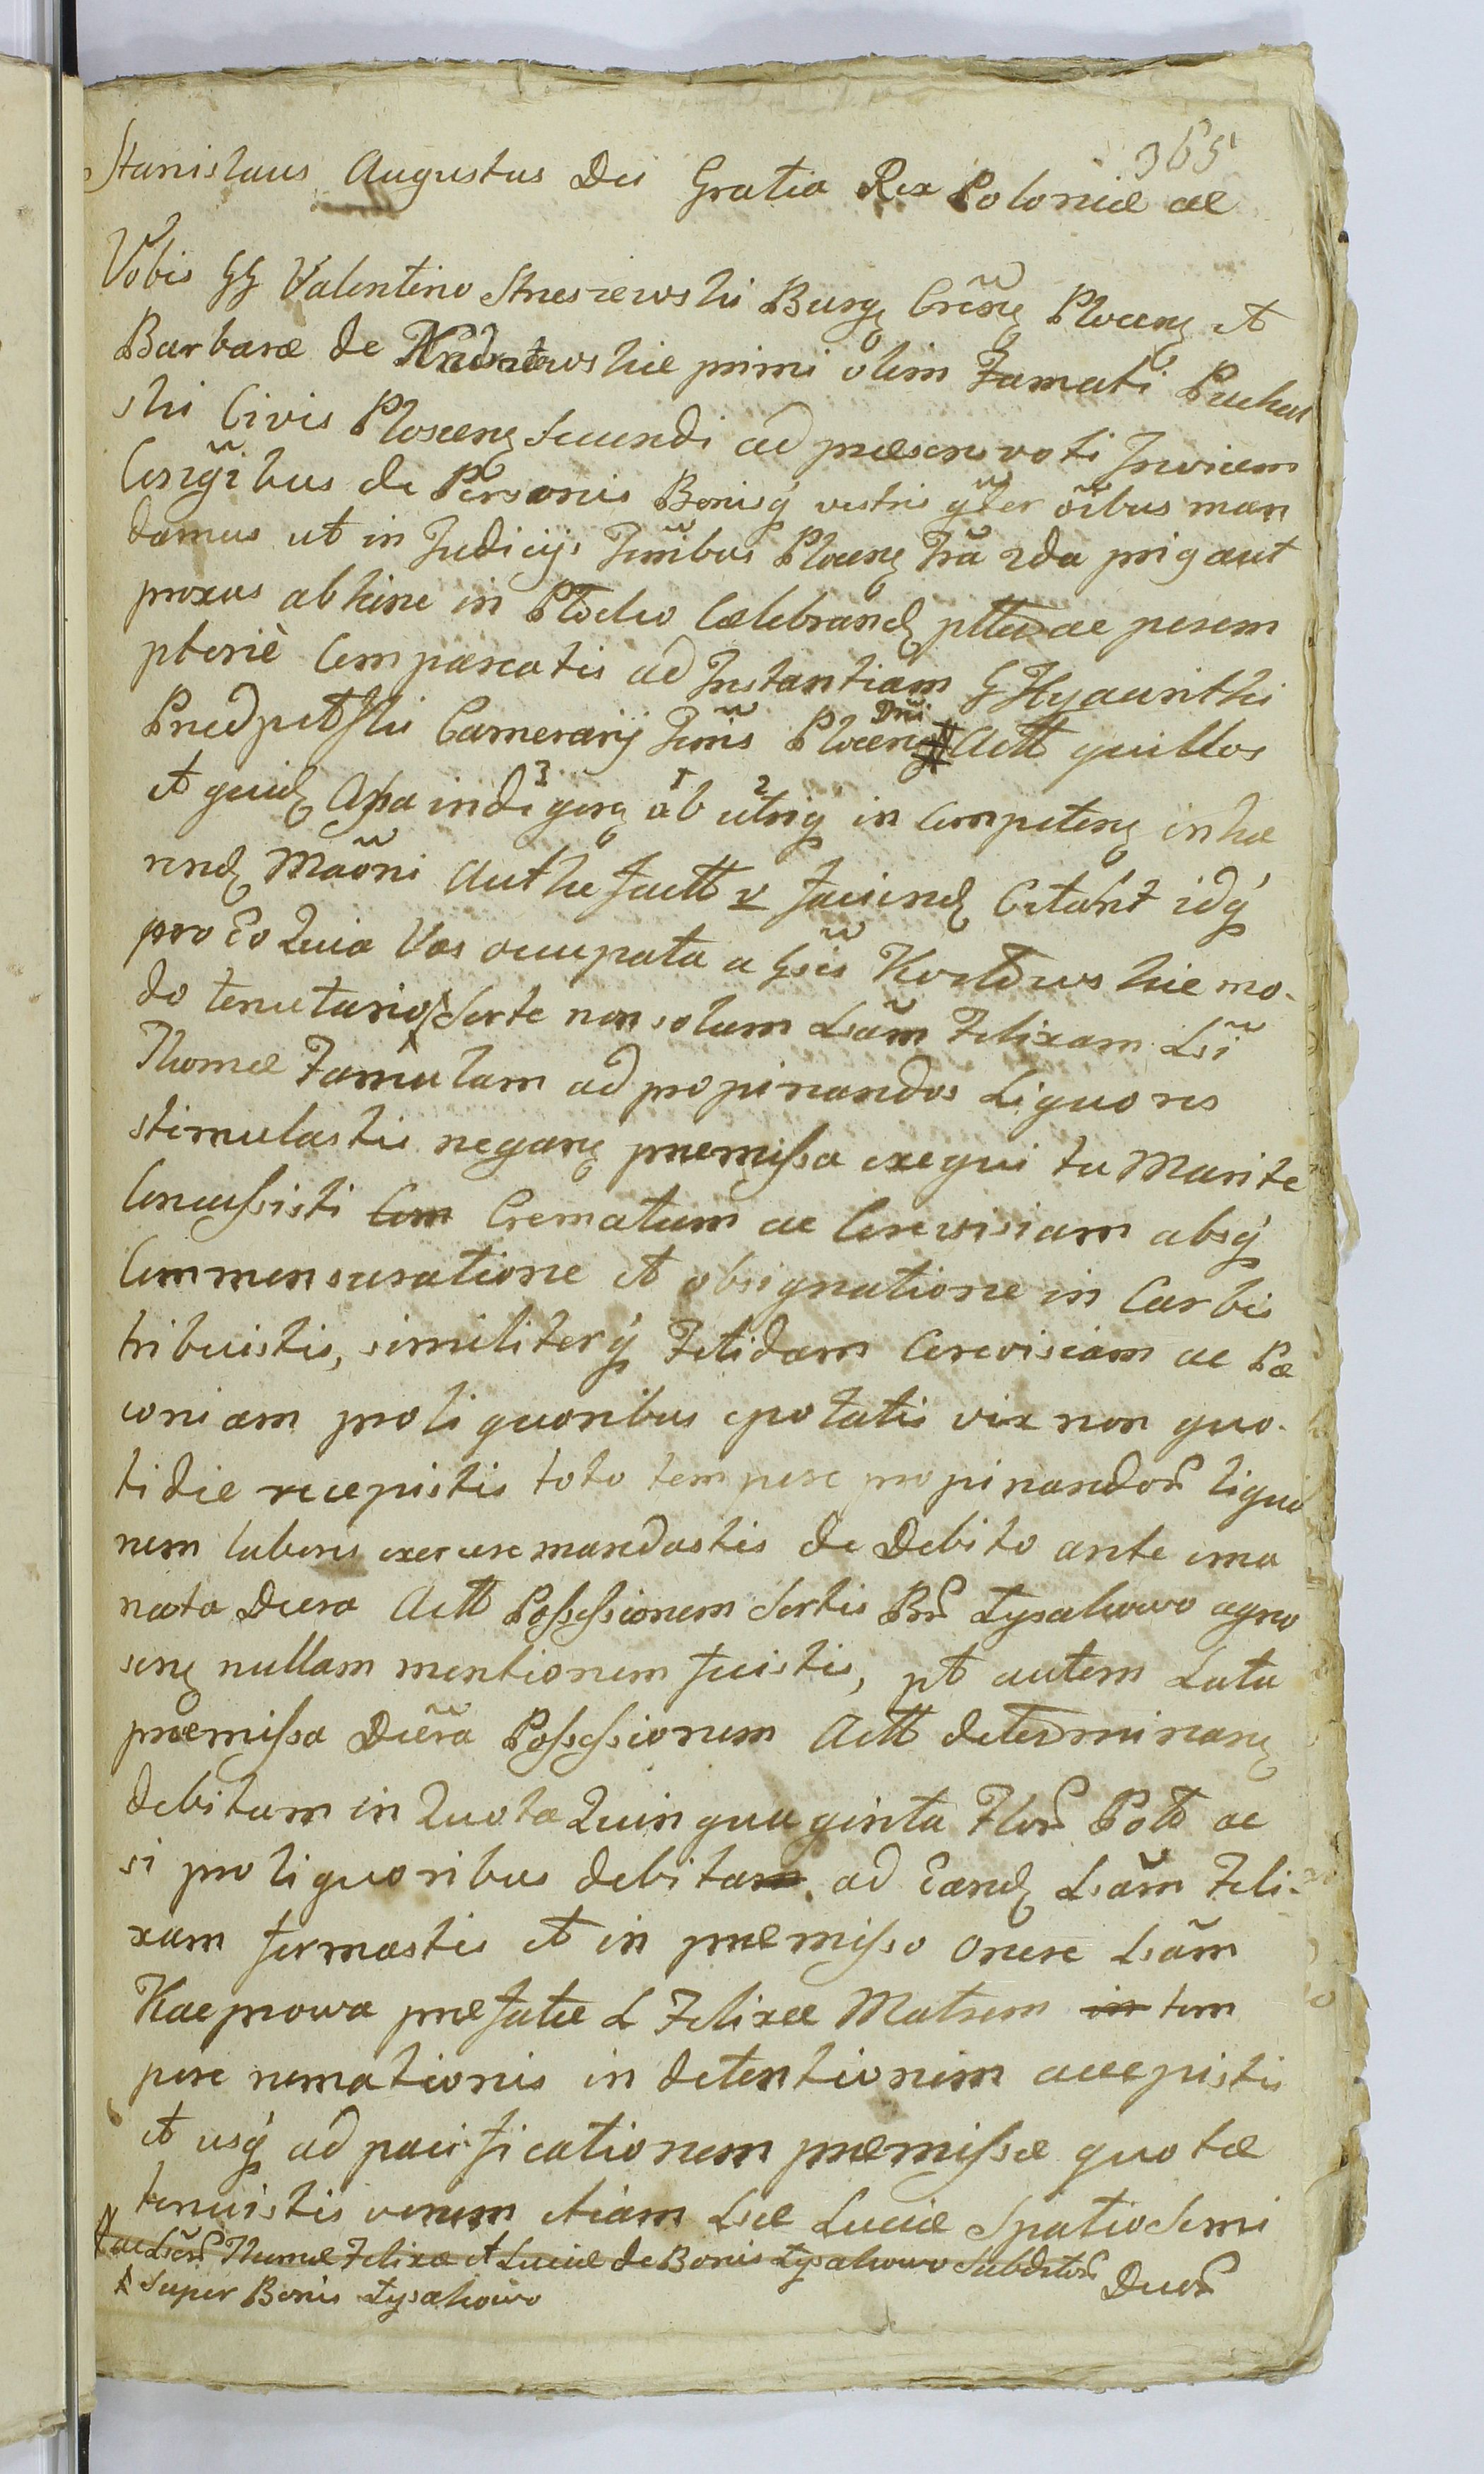 365
Stanislaus Augustus Dei Gratia Rex Poloniæ ae
Vobis GG Valentino Streszewski Burgꝫ Crẽsꝫ Plocenꝫ et
Barbaræ de primi olim Famati Puchal
ski Civis Plocenꝫ secundi ad præsens voti Invicem
Conj̃gibus de Personis Bonisq́ vestris gỹlter oĩbus man
damus ut in Judicijs Trr̃ibus Plocenꝫ Trã 2da prig aut
proxus abhinc in Plocko Celebrandꝫ pltrae perem
pterie Compareatis ad Instantiam G Hyacinthi
Camerarij Trr̃is Plocenꝫ Dñi Actt quillos
et quidꝫ indigenꝫ 3 ab 1 utriq́ 2 in Competenꝫ inhæ
rendꝫ Maõni Authæ factt v faciendꝫ Citãnt idq́
pro Eo Quia Vos occupata a Gsis modo
do tenutario Sorte non solum Lsãm Felixam Lsĩ
Thomæ Famulam ad propinandos Liquores
stimulastis neganꝫ præmissa exequi tu Marite
Concussisti Com Crematum ac Cerevisiam absq́
Commensuratione et obsignatione in Carbis
tribuistis, similiterq́ Fetidam Cerevisiam ac Pæ
coniam pro liquoribus epotatis vix non quo-
tidie recepistis toto tempore propinandor̃ liquo
rum labores exercere mandastis de Debito ante ema
nata Dicra Actt Possessionem Sortis Br̃ Łysakowo agno
scenꝫ nullam mentionem fuistis, pt autem Lata
præmissa Dicrã Possessionem Actt determinanꝫ
debitum in Quota Quinquaginta Flor̃ Poll ac
si pro liquoribus debitam ad Eandꝫ Lsãm Feli-
xam formastis et in præmisso onere Lsãm
Kacprowa præfatæ L Felixæ Matrem in tem
pore nemationis in detentionem accepistis
et usq́ ad pacificationem præmissæ quotæ
tenuistis verum etiam Lsæ Luciæ Spatio Semi
ac Lsor̃ Thomæ Felixæ et Luciæ de Bonis Łysakowo Subditor̃
Super Bonis Łysakowo
Duor̃